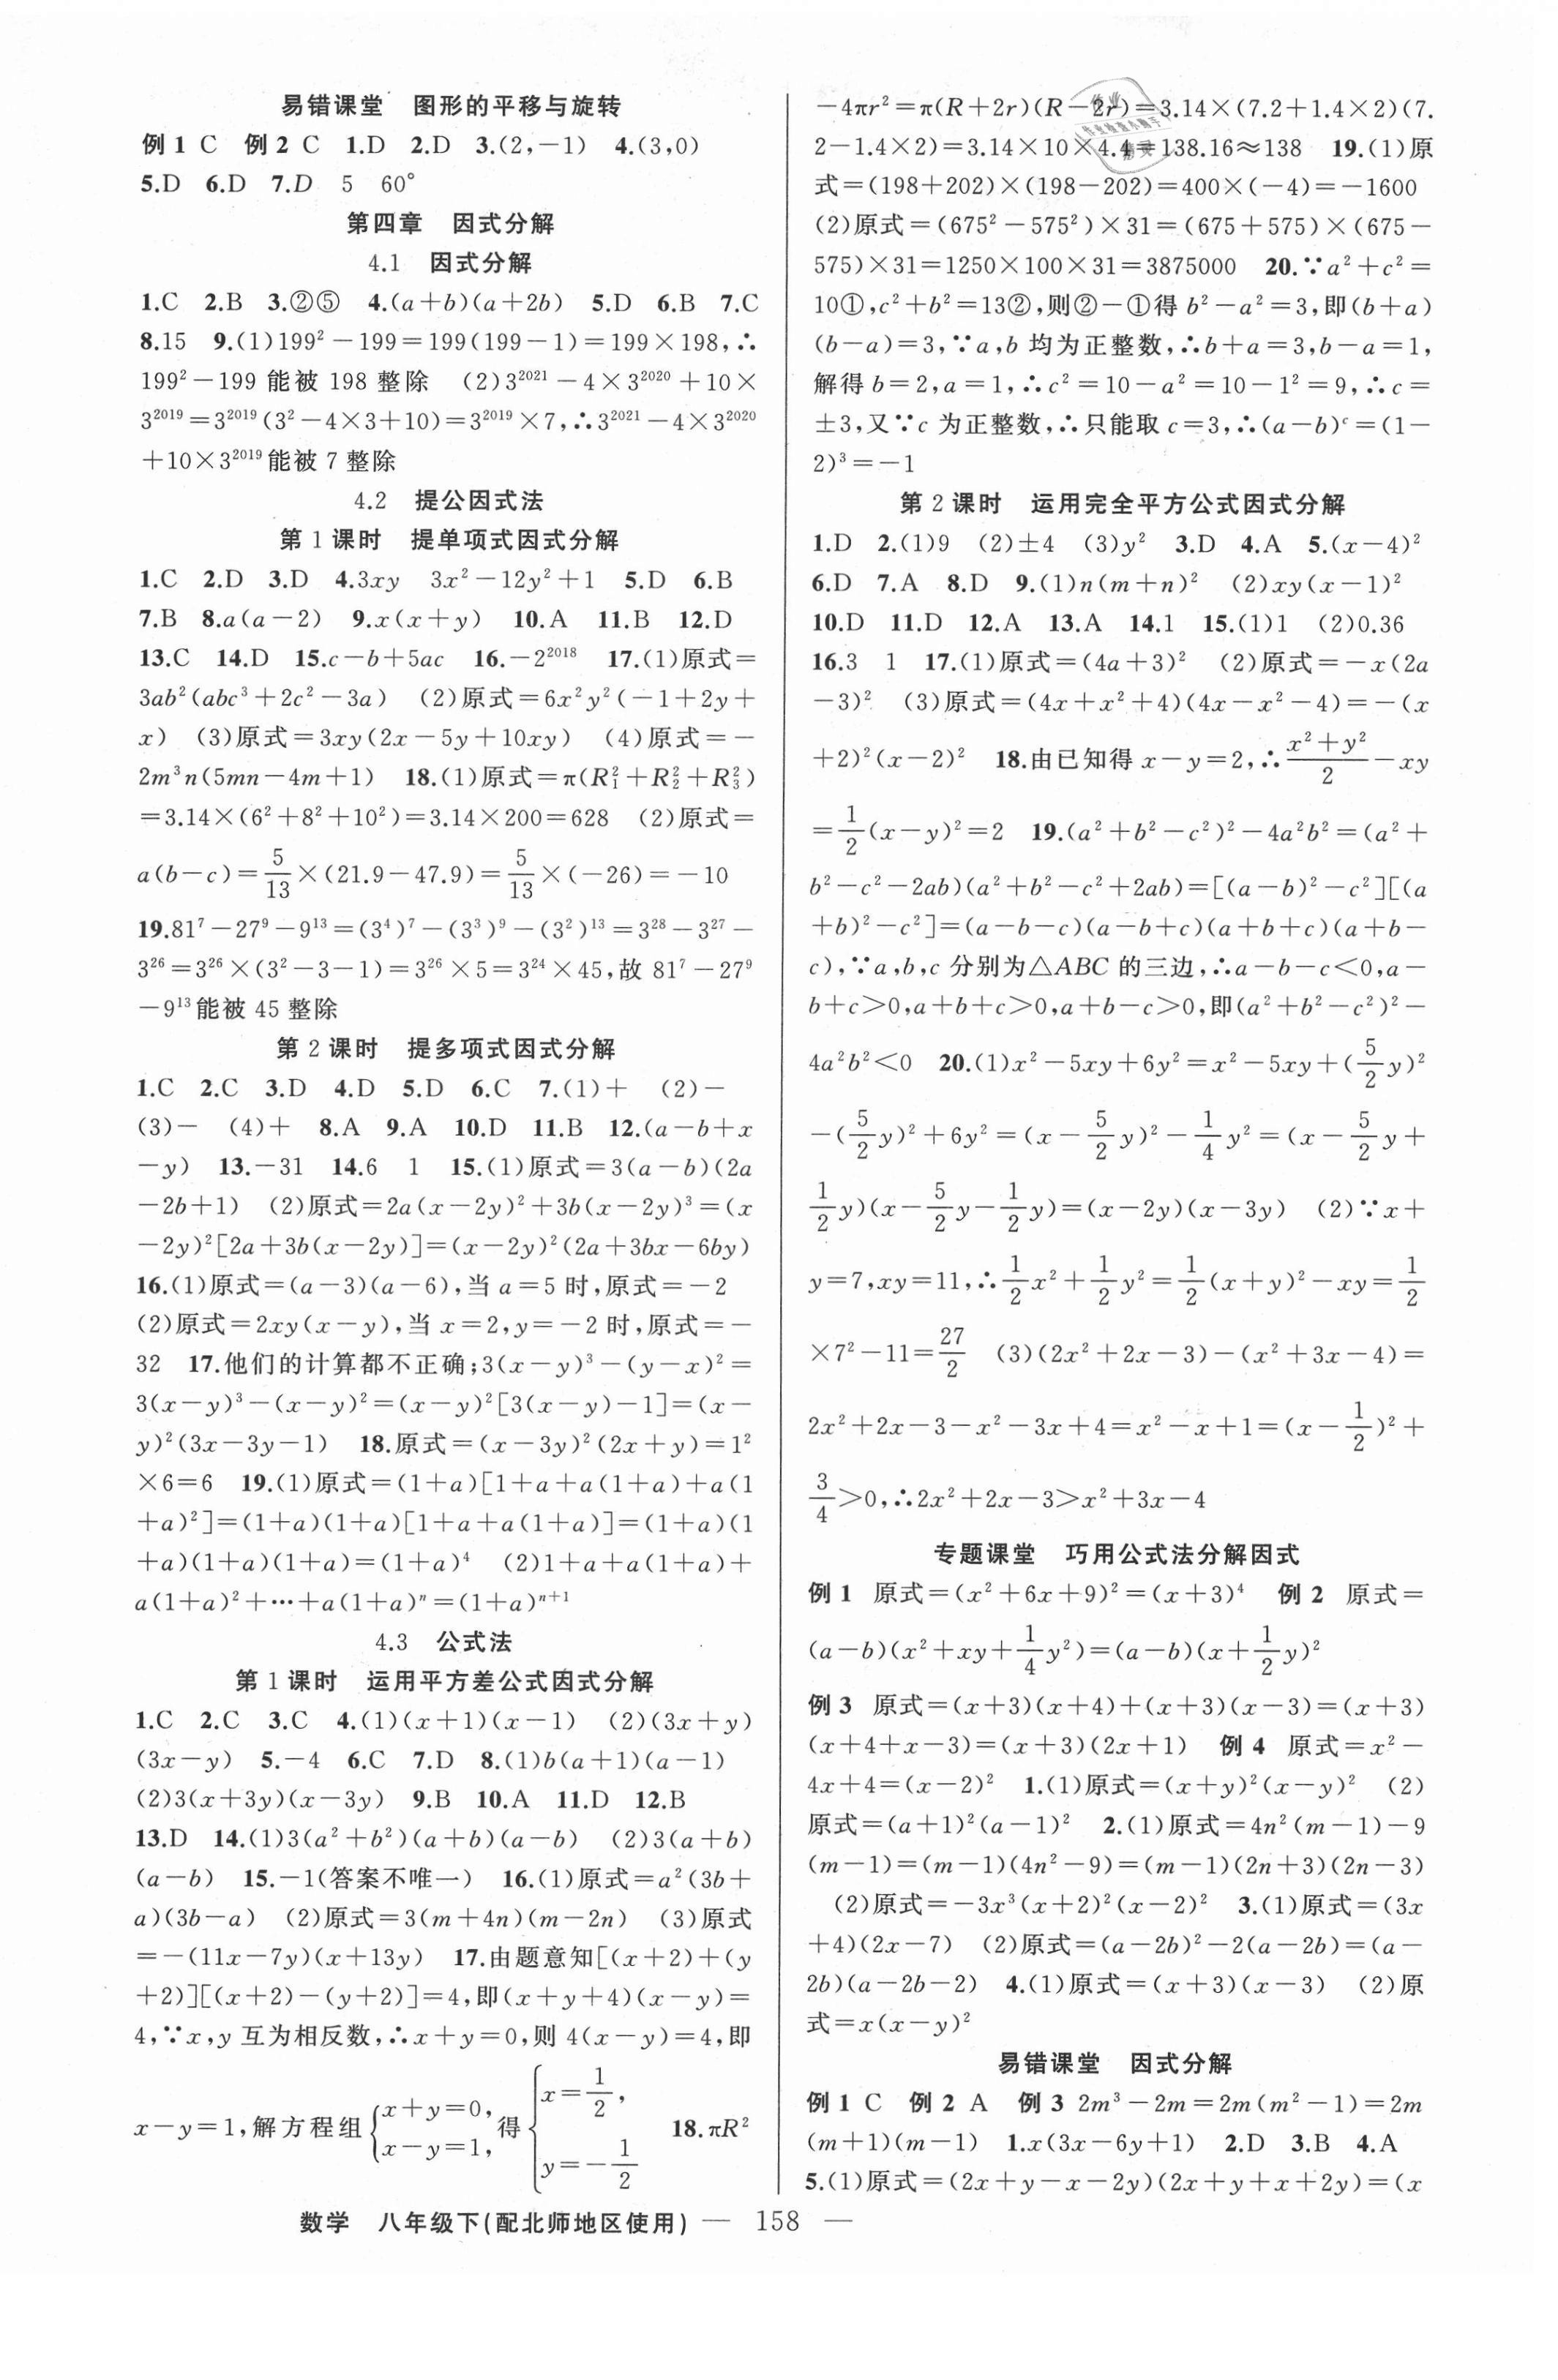 易错课堂 图形的平移与旋转
例1 C 例2 C 1.D 2.D 3.(2,-1) 4.(3,0)
5.D 6.D 7.D 5 60°
第四章 因式分解
4.1 因式分解
1.C 2.B 3.②⑤ 4.(a+b)(a+2b) 5.D 6.B 7.C
8.15 9.(1)199²-199=199(199-1)=199×198,∴
199²-199 能被 198 整除 (2)3²⁰²¹-4×3²⁰²⁰+10×
3²⁰¹⁹=3²⁰¹⁹(3²-4×3+10)=3²⁰¹⁹×7,∴3²⁰²¹-4×3²⁰²⁰
+10×3²⁰¹⁹能被 7 整除
4.2 提公因式法
第1课时 提单项式因式分解
1.C 2.D 3.D 4.3xy 3x²-12y²+1 5.D 6.B
7.B 8.a(a-2) 9.x(x+y) 10.A 11.B 12.D
13.C 14.D 15.c-b+5ac 16.-2²⁰¹⁸ 17.(1)原式=
3ab²(abc³+2c²-3a) (2)原式=6x²y²(-1+2y+
x) (3)原式=3xy(2x-5y+10xy) (4)原式=-
2m³n(5mn-4m+1) 18.(1)原式=π(R₁²+R₂²+R₃²)
=3.14×(6²+8²+10²)=3.14×200=628 (2)原式=
a(b-c)=5/13×(21.9-47.9)=5/13×(-26)=-10
19.81⁷-27⁹-9¹³=(3⁴)⁷-(3³)⁹-(3²)¹³=3²⁸-3²⁷-
3²⁶=3²⁶×(3²-3-1)=3²⁶×5=3²⁴×45,故 81⁷-27⁹
-9¹³能被 45 整除
第2课时 提多项式因式分解
1.C 2.C 3.D 4.D 5.D 6.C 7.(1)+ (2)-
(3)- (4)+ 8.A 9.A 10.D 11.B 12.(a-b+x
-y) 13.-31 14.6 1 15.(1)原式=3(a-b)(2a
-2b+1) (2)原式=2a(x-2y)²+3b(x-2y)³=(x
-2y)²[2a+3b(x-2y)]=(x-2y)²(2a+3bx-6by)
16.(1)原式=(a-3)(a-6),当 a=5 时,原式=-2
(2)原式=2xy(x-y),当 x=2,y=-2 时,原式=-
32 17.他们的计算都不正确;3(x-y)³-(y-x)²=
3(x-y)³-(x-y)²=(x-y)²[3(x-y)-1]=(x-
y)²(3x-3y-1) 18.原式=(x-3y)²(2x+y)=1²
×6=6 19.(1)原式=(1+a)[1+a+a(1+a)+a(1
+a)²]=(1+a)(1+a)[1+a+a(1+a)]=(1+a)(1
+a)(1+a)(1+a)=(1+a)⁴ (2)1+a+a(1+a)+
a(1+a)²+…+a(1+a)ⁿ=(1+a)ⁿ⁺¹
4.3 公式法
第1课时 运用平方差公式因式分解
1.C 2.C 3.C 4.(1)(x+1)(x-1) (2)(3x+y)
(3x-y) 5.-4 6.C 7.D 8.(1)b(a+1)(a-1)
(2)3(x+3y)(x-3y) 9.B 10.A 11.D 12.B
13.D 14.(1)3(a²+b²)(a+b)(a-b) (2)3(a+b)
(a-b) 15.-1(答案不唯一) 16.(1)原式=a²(3b+
a)(3b-a) (2)原式=3(m+4n)(m-2n) (3)原式
=-(11x-7y)(x+13y) 17.由题意知[(x+2)+(y
+2)][(x+2)-(y+2)]=4,即(x+y+4)(x-y)=
4,∵x,y 互为相反数,∴x+y=0,则 4(x-y)=4,即
x-y=1,解方程组{x+y=0, x-y=1, 得{x=1/2, y=-1/2 18.πR²
-4πr²=π(R+2r)(R-2r)=3.14×(7.2+1.4×2)(7.
2-1.4×2)=3.14×10×4.4=138.16≈138 19.(1)原
式=(198+202)×(198-202)=400×(-4)=-1600
(2)原式=(675²-575²)×31=(675+575)×(675-
575)×31=1250×100×31=3875000 20.∵a²+c²=
10①,c²+b²=13②,则②-①得 b²-a²=3,即(b+a)
(b-a)=3,∵a,b 均为正整数,∴b+a=3,b-a=1,
解得 b=2,a=1,∴c²=10-a²=10-1²=9,∴c=
±3,又∵c 为正整数,∴只能取 c=3,∴(a-b)ᶜ=(1-
2)³=-1
第2课时 运用完全平方公式因式分解
1.D 2.(1)9 (2)±4 (3)y² 3.D 4.A 5.(x-4)²
6.D 7.A 8.D 9.(1)n(m+n)² (2)xy(x-1)²
10.D 11.D 12.A 13.A 14.1 15.(1)1 (2)0.36
16.3 1 17.(1)原式=(4a+3)² (2)原式=-x(2a
-3)² (3)原式=(4x+x²+4)(4x-x²-4)=-(x
+2)²(x-2)² 18.由已知得 x-y=2,∴(x²+y²)/2-xy
=1/2(x-y)²=2 19.(a²+b²-c²)²-4a²b²=(a²+
b²-c²-2ab)(a²+b²-c²+2ab)=[(a-b)²-c²][(a
+b)²-c²]=(a-b-c)(a-b+c)(a+b+c)(a+b-
c),∵a,b,c 分别为△ABC 的三边,∴a-b-c<0,a-
b+c>0,a+b+c>0,a+b-c>0,即(a²+b²-c²)²-
4a²b²<0 20.(1)x²-5xy+6y²=x²-5xy+(5/2y)²
-(5/2y)²+6y²=(x-5/2y)²-1/4y²=(x-5/2y+
1/2y)(x-5/2y-1/2y)=(x-2y)(x-3y) (2)∵x+
y=7,xy=11,∴1/2x²+1/2y²=1/2(x+y)²-xy=1/2
×7²-11=27/2 (3)(2x²+2x-3)-(x²+3x-4)=
2x²+2x-3-x²-3x+4=x²-x+1=(x-1/2)²+
3/4>0,∴2x²+2x-3>x²+3x-4
专题课堂 巧用公式法分解因式
例1 原式=(x²+6x+9)²=(x+3)⁴ 例2 原式=
(a-b)(x²+xy+1/4y²)=(a-b)(x+1/2y)²
例3 原式=(x+3)(x+4)+(x+3)(x-3)=(x+3)
(x+4+x-3)=(x+3)(2x+1) 例4 原式=x²-
4x+4=(x-2)² 1.(1)原式=(x+y)²(x-y)² (2)
原式=(a+1)²(a-1)² 2.(1)原式=4n²(m-1)-9
(m-1)=(m-1)(4n²-9)=(m-1)(2n+3)(2n-3)
(2)原式=-3x³(x+2)²(x-2)² 3.(1)原式=(3x
+4)(2x-7) (2)原式=(a-2b)²-2(a-2b)=(a-
2b)(a-2b-2) 4.(1)原式=(x+3)(x-3) (2)原
式=x(x-y)²
易错课堂 因式分解
例1 C 例2 A 例3 2m³-2m=2m(m²-1)=2m
(m+1)(m-1) 1.x(3x-6y+1) 2.D 3.B 4.A
5.(1)原式=(2x+y-x-2y)(2x+y+x+2y)=(x
数学 八年级下(配北师地区使用) — 158 —